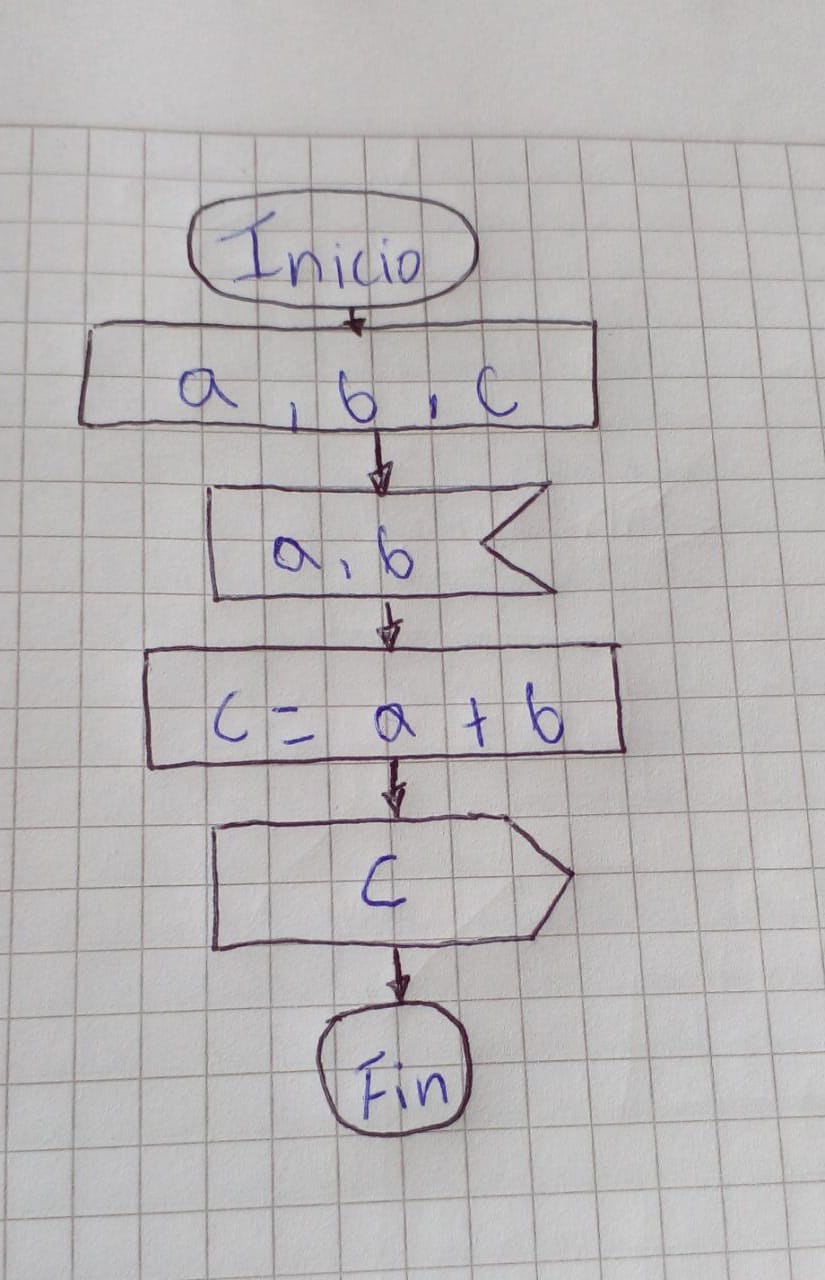 Inicio
a, b, c
a, b
c = a + b
C
Fin